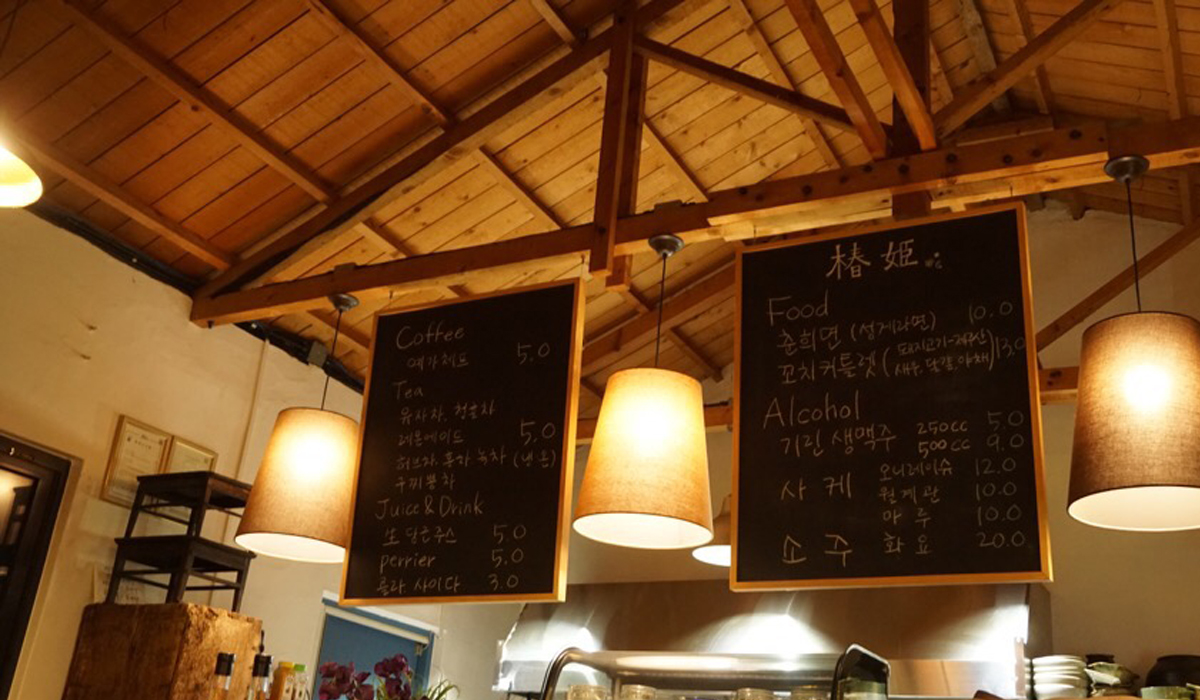 Coffee
예가체프 5.0
Tea
유자차, 청귤차
레몬에이드 5.0
허브차, 홍차, 녹차 (냉.온)
Juice & Drink
生 당근주스 5.0
perrier 5.0
콜라. 사이다 3.0
椿姫
Food
춘희면 (성게라면) 10.0
꼬치커틀렛 (돼지고기-제주산 13.0
새우, 달걀, 야채)
Alcohol
기린 생맥주 250cc 5.0
500cc 9.0
사케 오니레이슈 12.0
월계관 10.0
마루 10.0
소주 화요 20.0